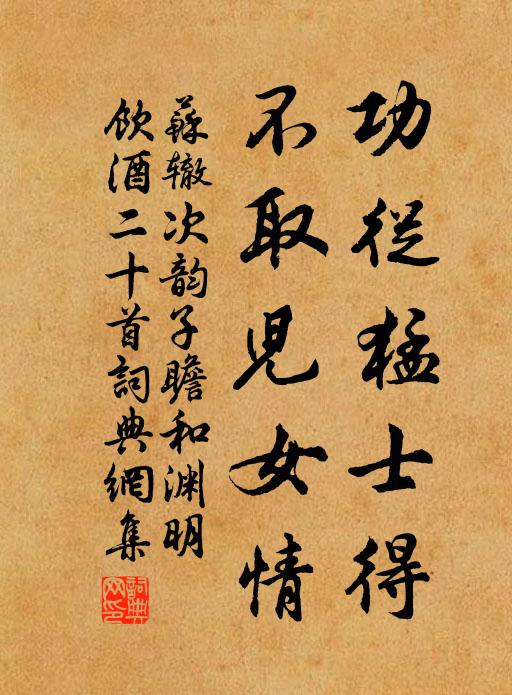 功從猛士得
不取兒女情
蘇辙次韵子瞻和渊明
飲酒二十首詞典網集
詞典
网印